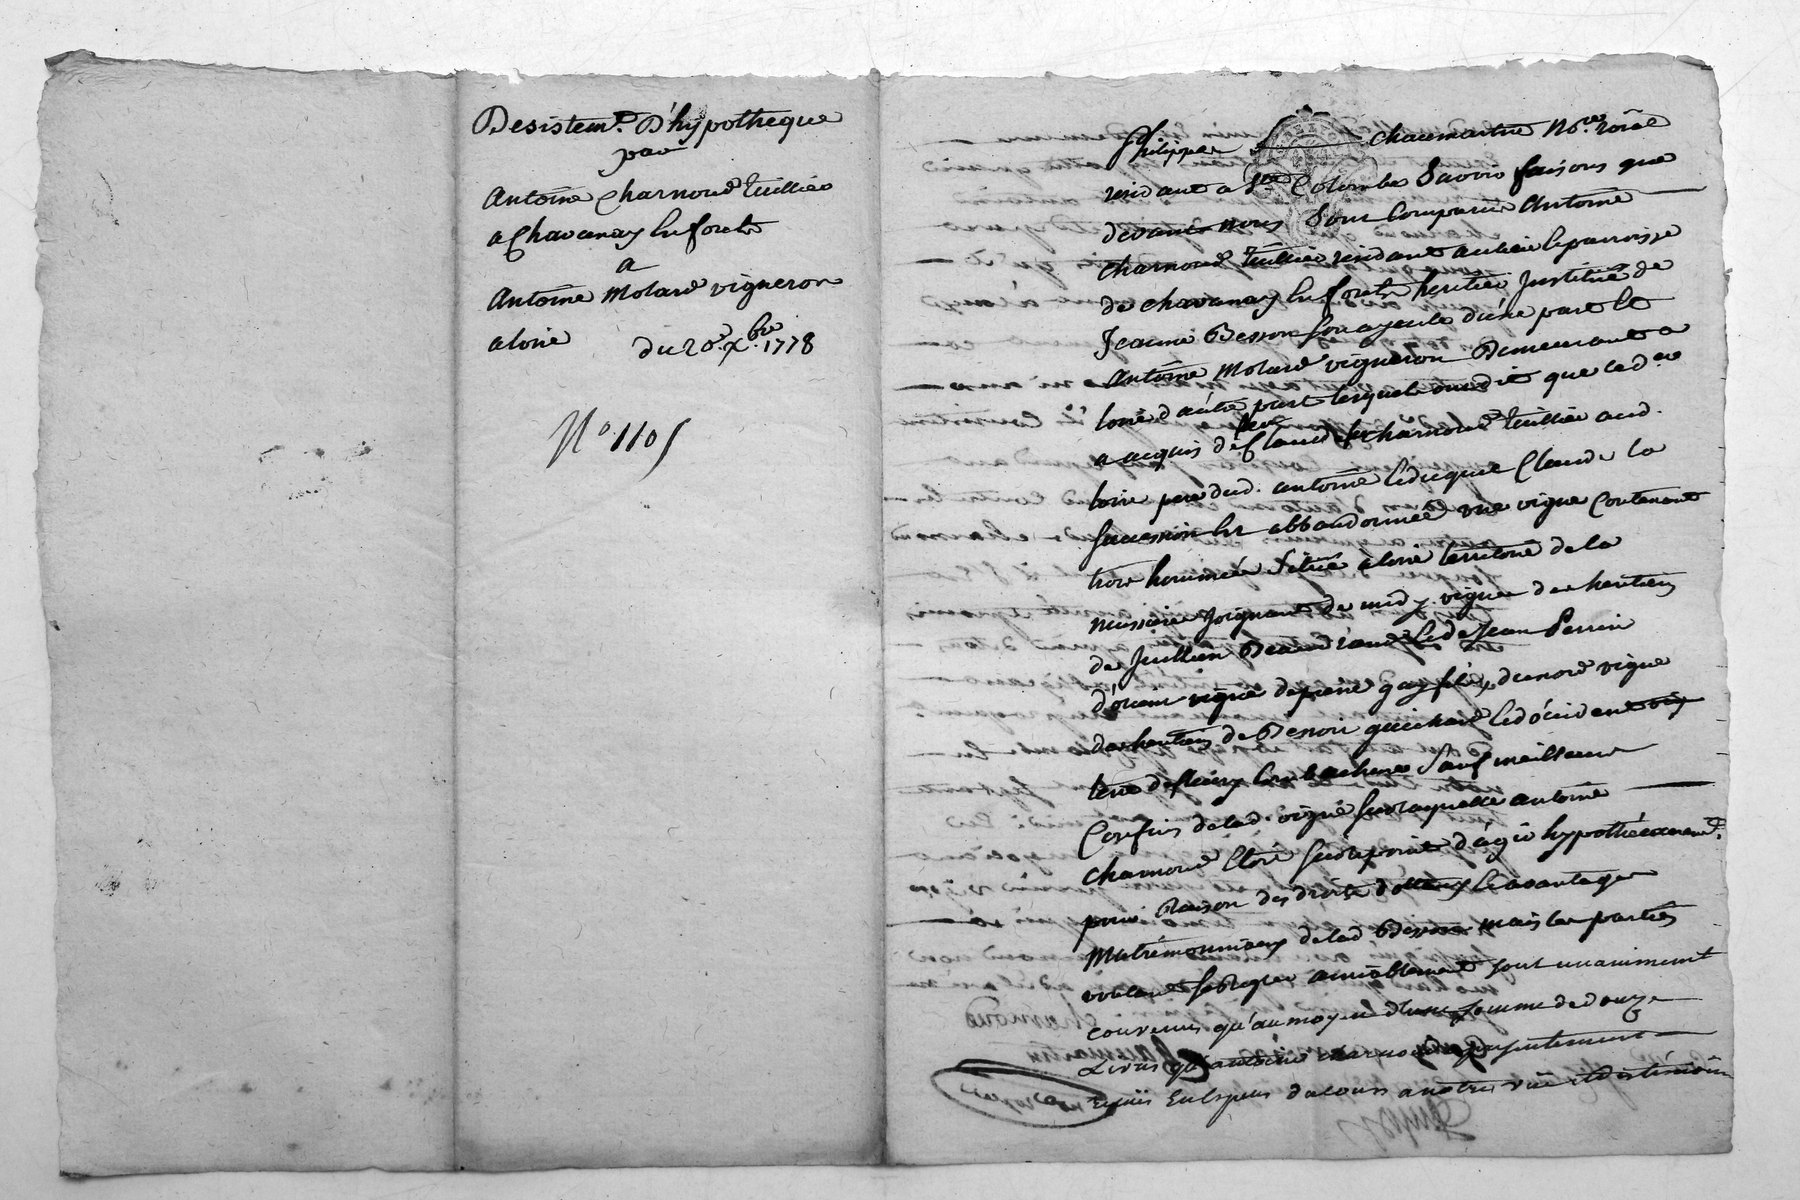 Desistemt. D'hypotheque
par
Antoine Charnoud tuillier
a Chavanay
a
Antoine Molard vigneron
a loire du 20e. Xbre. 1778
No. 1105
Philippe Chaumartin Nore. roial
resident a Ste Colombe Savoir faisons que
devant nous Sont Comparus Antoine
charnoud tuillier resident au lieu & parroisse
de chavanay heritier Jnstitué de
Jeanne Besson son ayeule d'une part &
Antoine Molard vigneron Demeurant a
loire d'autre part lesquels ont dit que led. 
a acquis de Claude charnoud tuillier aud.
loire pere dud. antoine & duquel Claude la
succession est abbandonnée une vigne Contenant
trois hommées Située a loire territoire de la
joignant de midy vigne des heritiers
de Jullien & de Jean Perrin
d'orient vigne de pierre gay fils, du nord vigne
des heritiers de Benoit guichard & d'occident
terre de fleury Sauf meilleurs
Confins de lad. vigne sur laquelle antoine
charnoud etoit sur le point d'agir hypothécairement.
pour Raison des droits dottaux & avantages
Matrimoniaux de lad. Besson mais les parties
voulant se Regler amiablement sont unanimement
convenues qu'au moyen d'une somme de douze
Livres qu'antoine charnoud a presentement
Reçûs En Especes de cours a notre vüe & des témoins